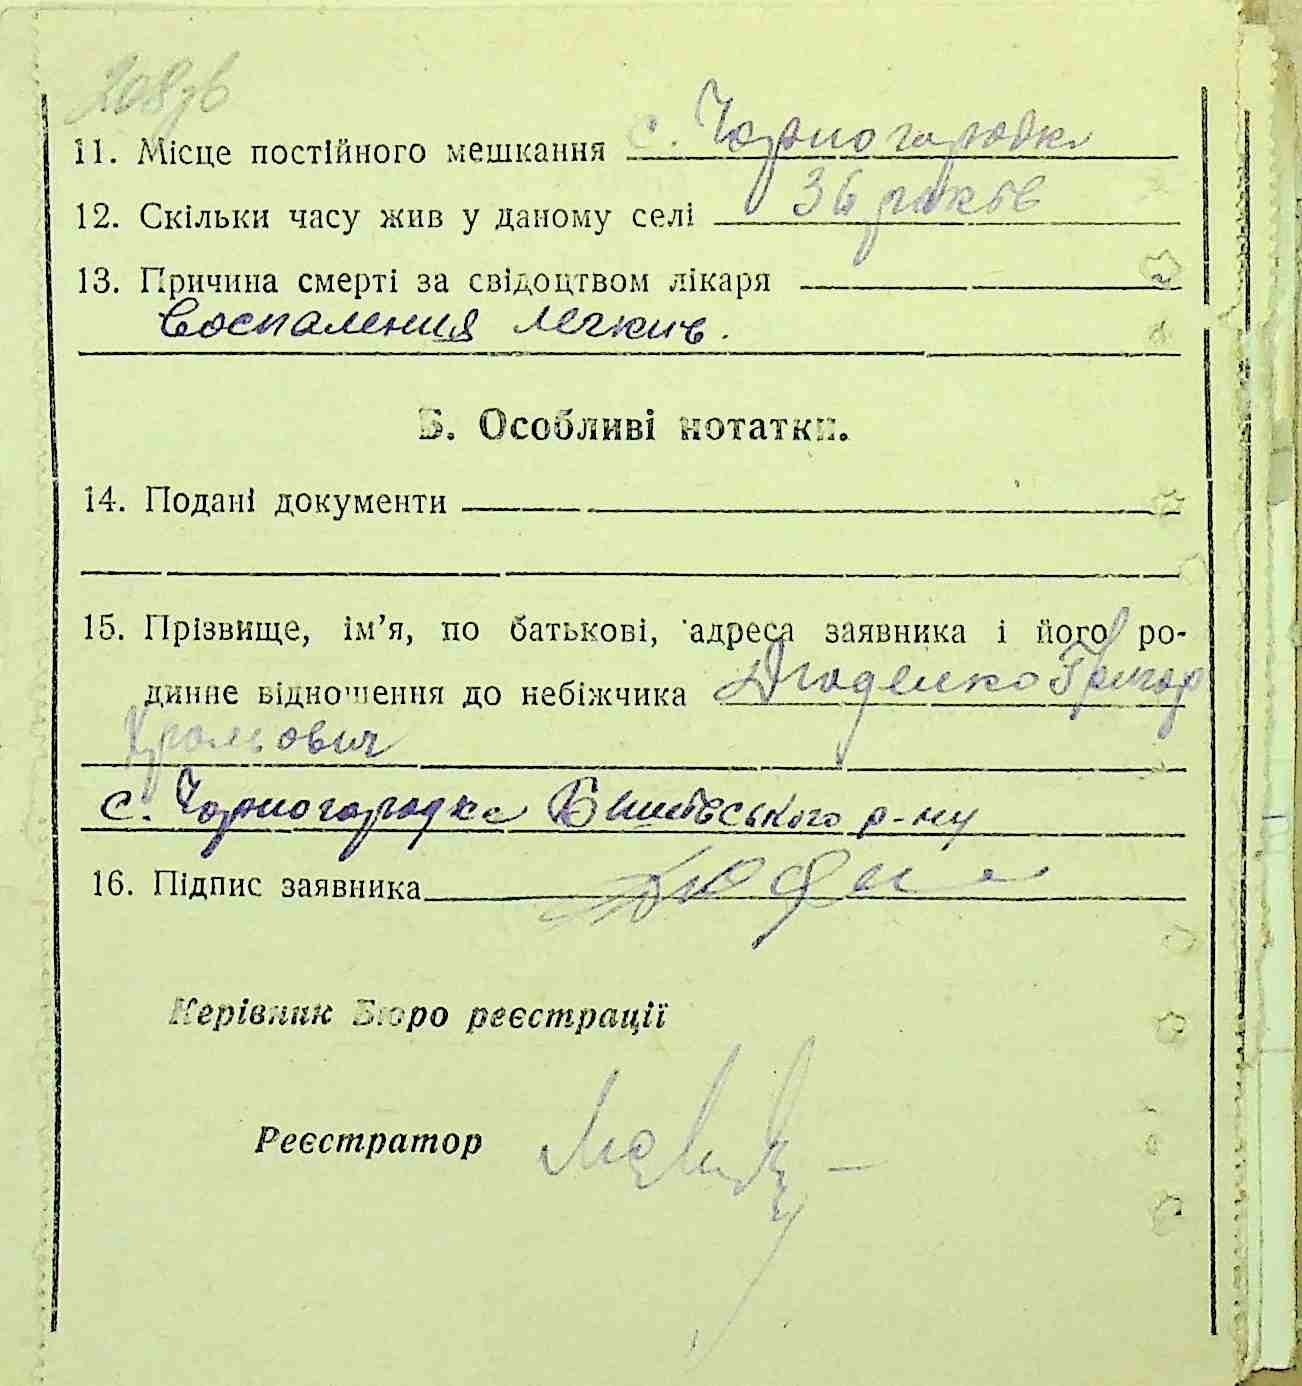 208зв
11. Місце постійного мешкання с. Чорногородка
12. Скільки часу жив у даному селі 36 років
13. Причина смерті за свідоцтвом лікаря
воспаления легких.
Б. Особливі нотатки.
14. Подані документи
15. Прізвище, ім’я, по батькові, адреса заявника і його ро-
динне відношення до небіжчика Григор
с. Чорногородка Бишівського р-ну
16. Підпис заявника
Керівник Бюро реєстрації
Реєстратор